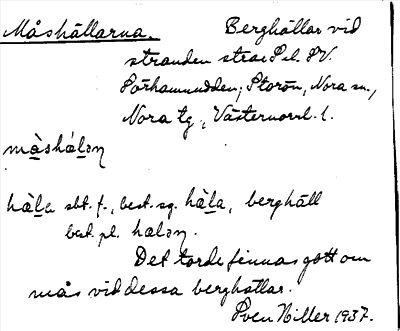 Måshällarna. Berghällar vid
stranden strax S el. SV.
Sörhamnudden, Storön, Nora sn.,
Nora tg., Västernorrl. l.
må̀shálaŋ
hàla sbt. f., best. sg. hàla, berghäll
best. pl. halaŋ.
Det torde finnas gott om
mås vid dessa berghällar.
Sven Hiller 1937.